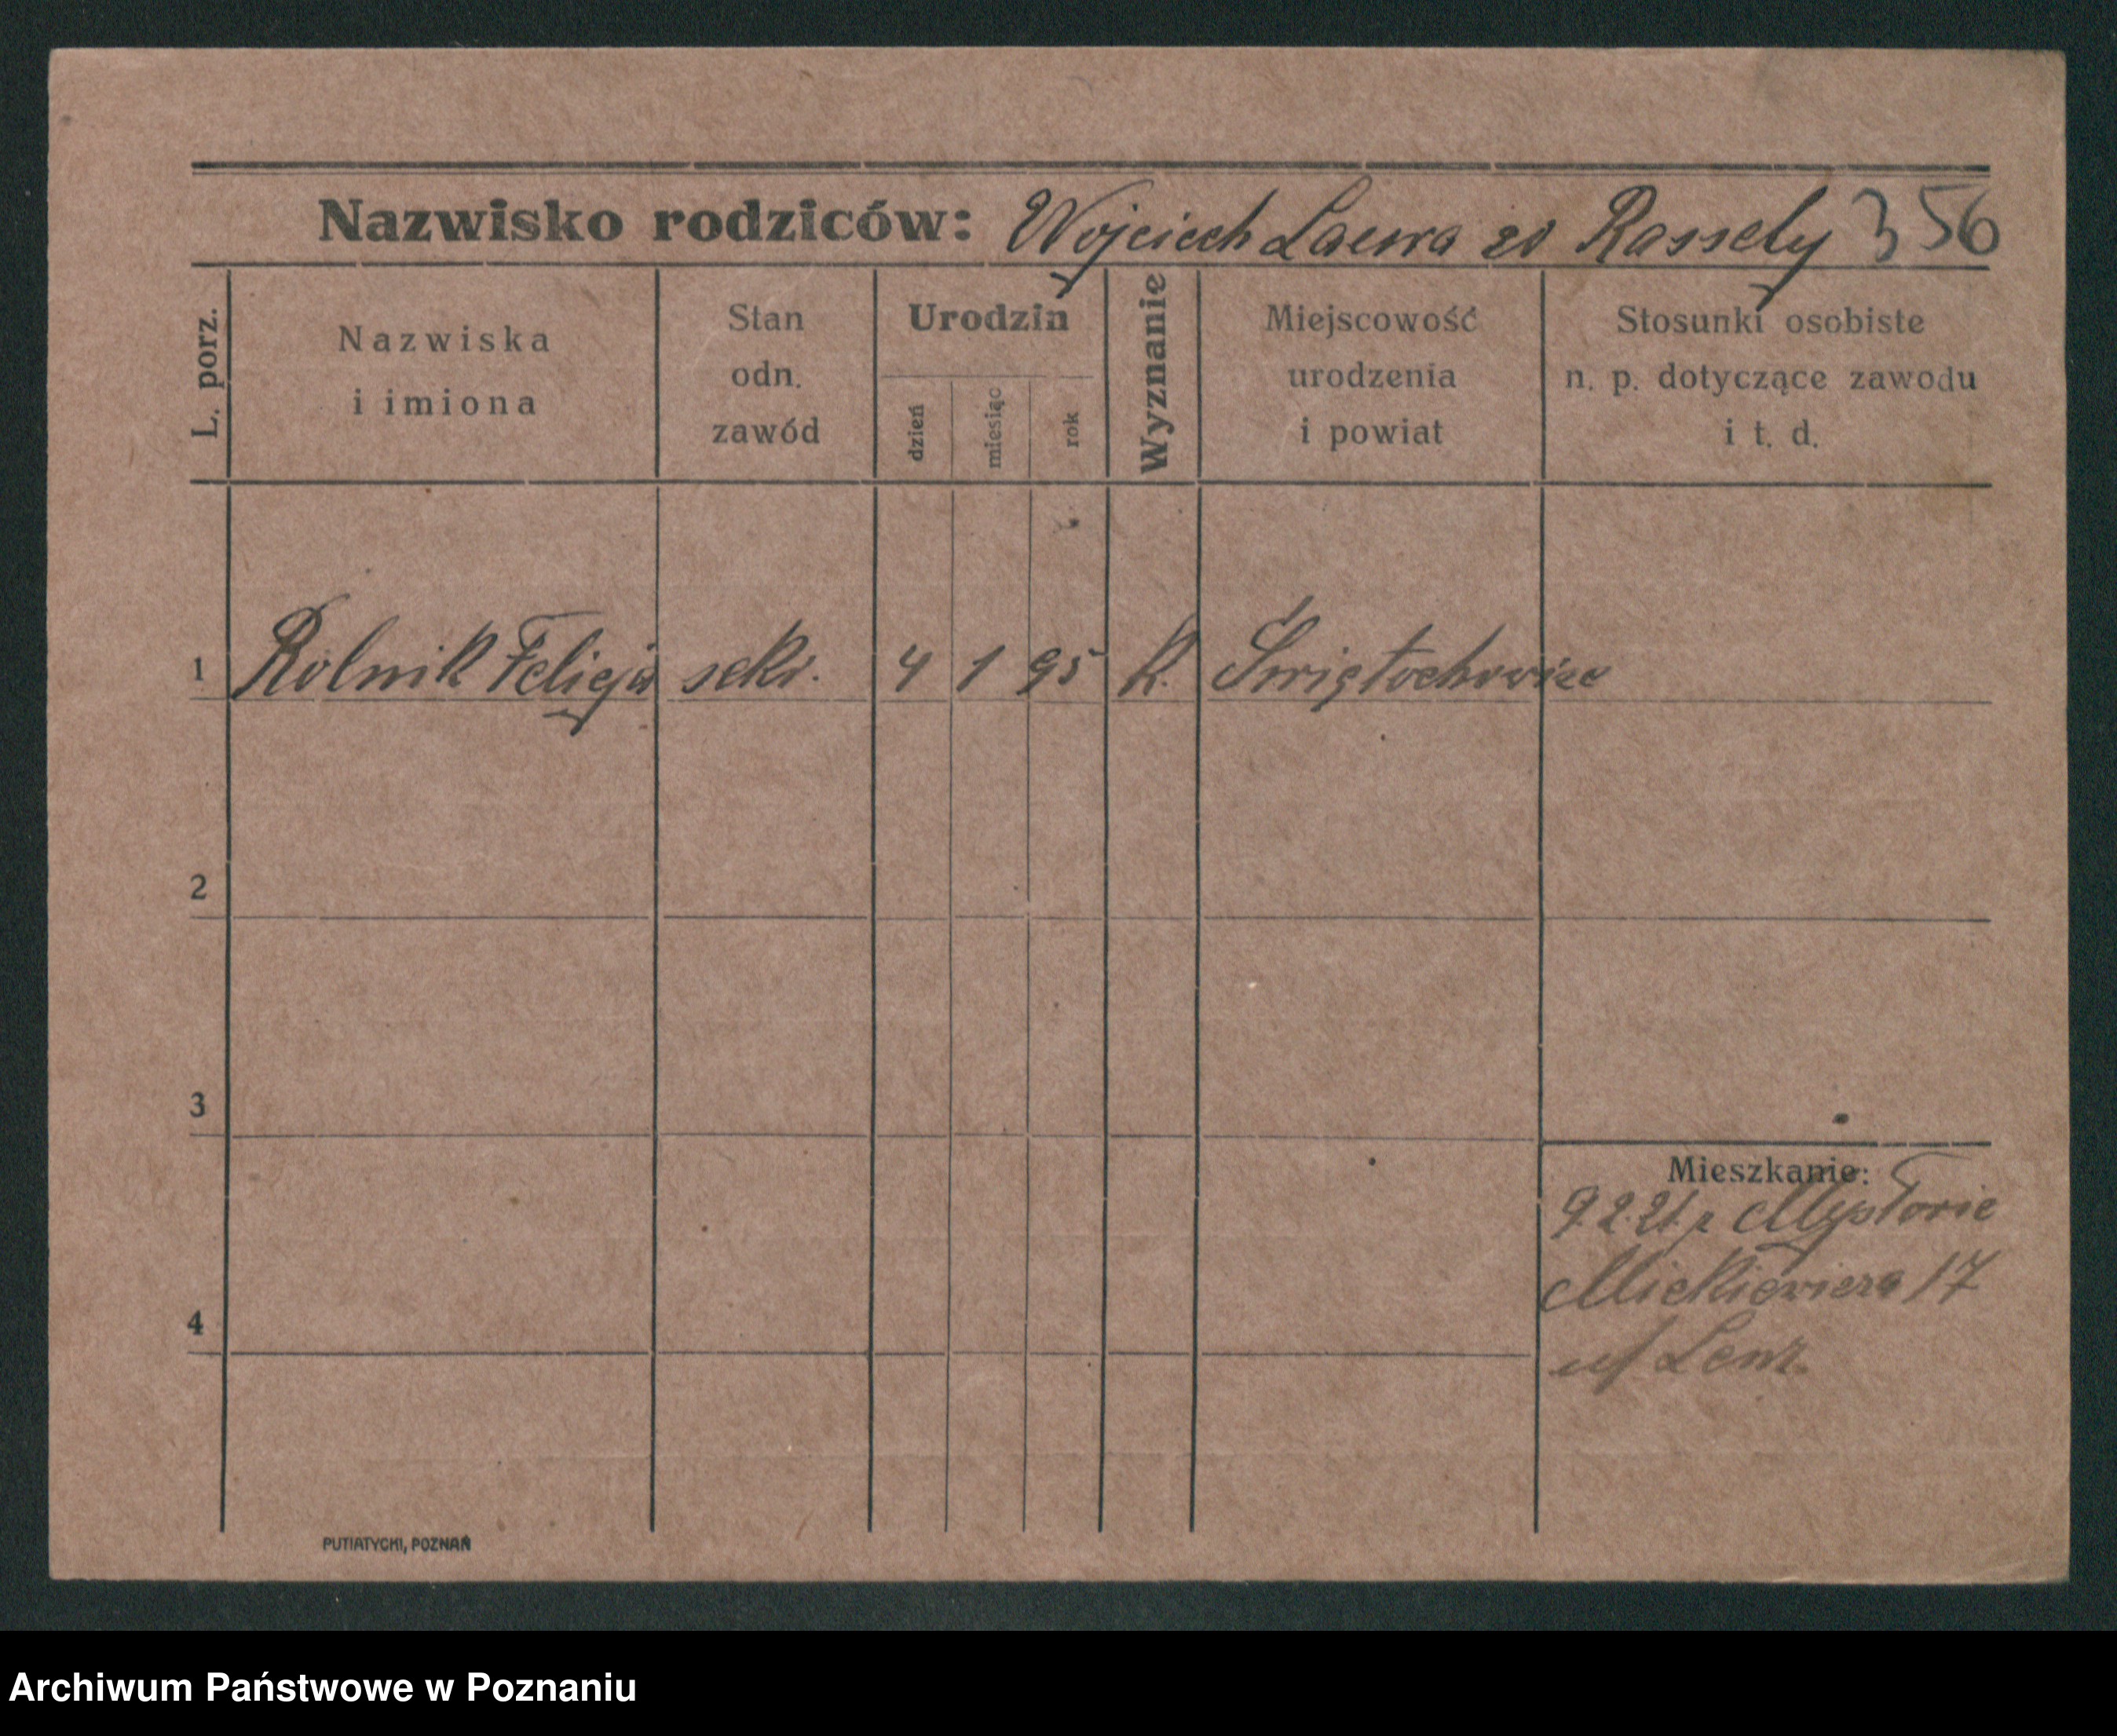 Nazwisko rodziców: Wojciech Laura z Rassely 356
L. porz.
Nazwiska i imiona
Stan odn. zawód
Urodzin
dzień miesiąc rok
Wyznanie
Miejscowość urodzenia i powiat
Stosunki osobiste n. p. dotyczące zawodu i t. d.
1 Rolnik Felicja sekr. 4 1 95 k. Świętochowice
2
3
4
Mieszkanie:
9.2.21. z Mysłowic
Mickiewicza 17
Lenz.
PUTIATYCKI, POZNAŃ
Archiwum Państwowe w Poznaniu